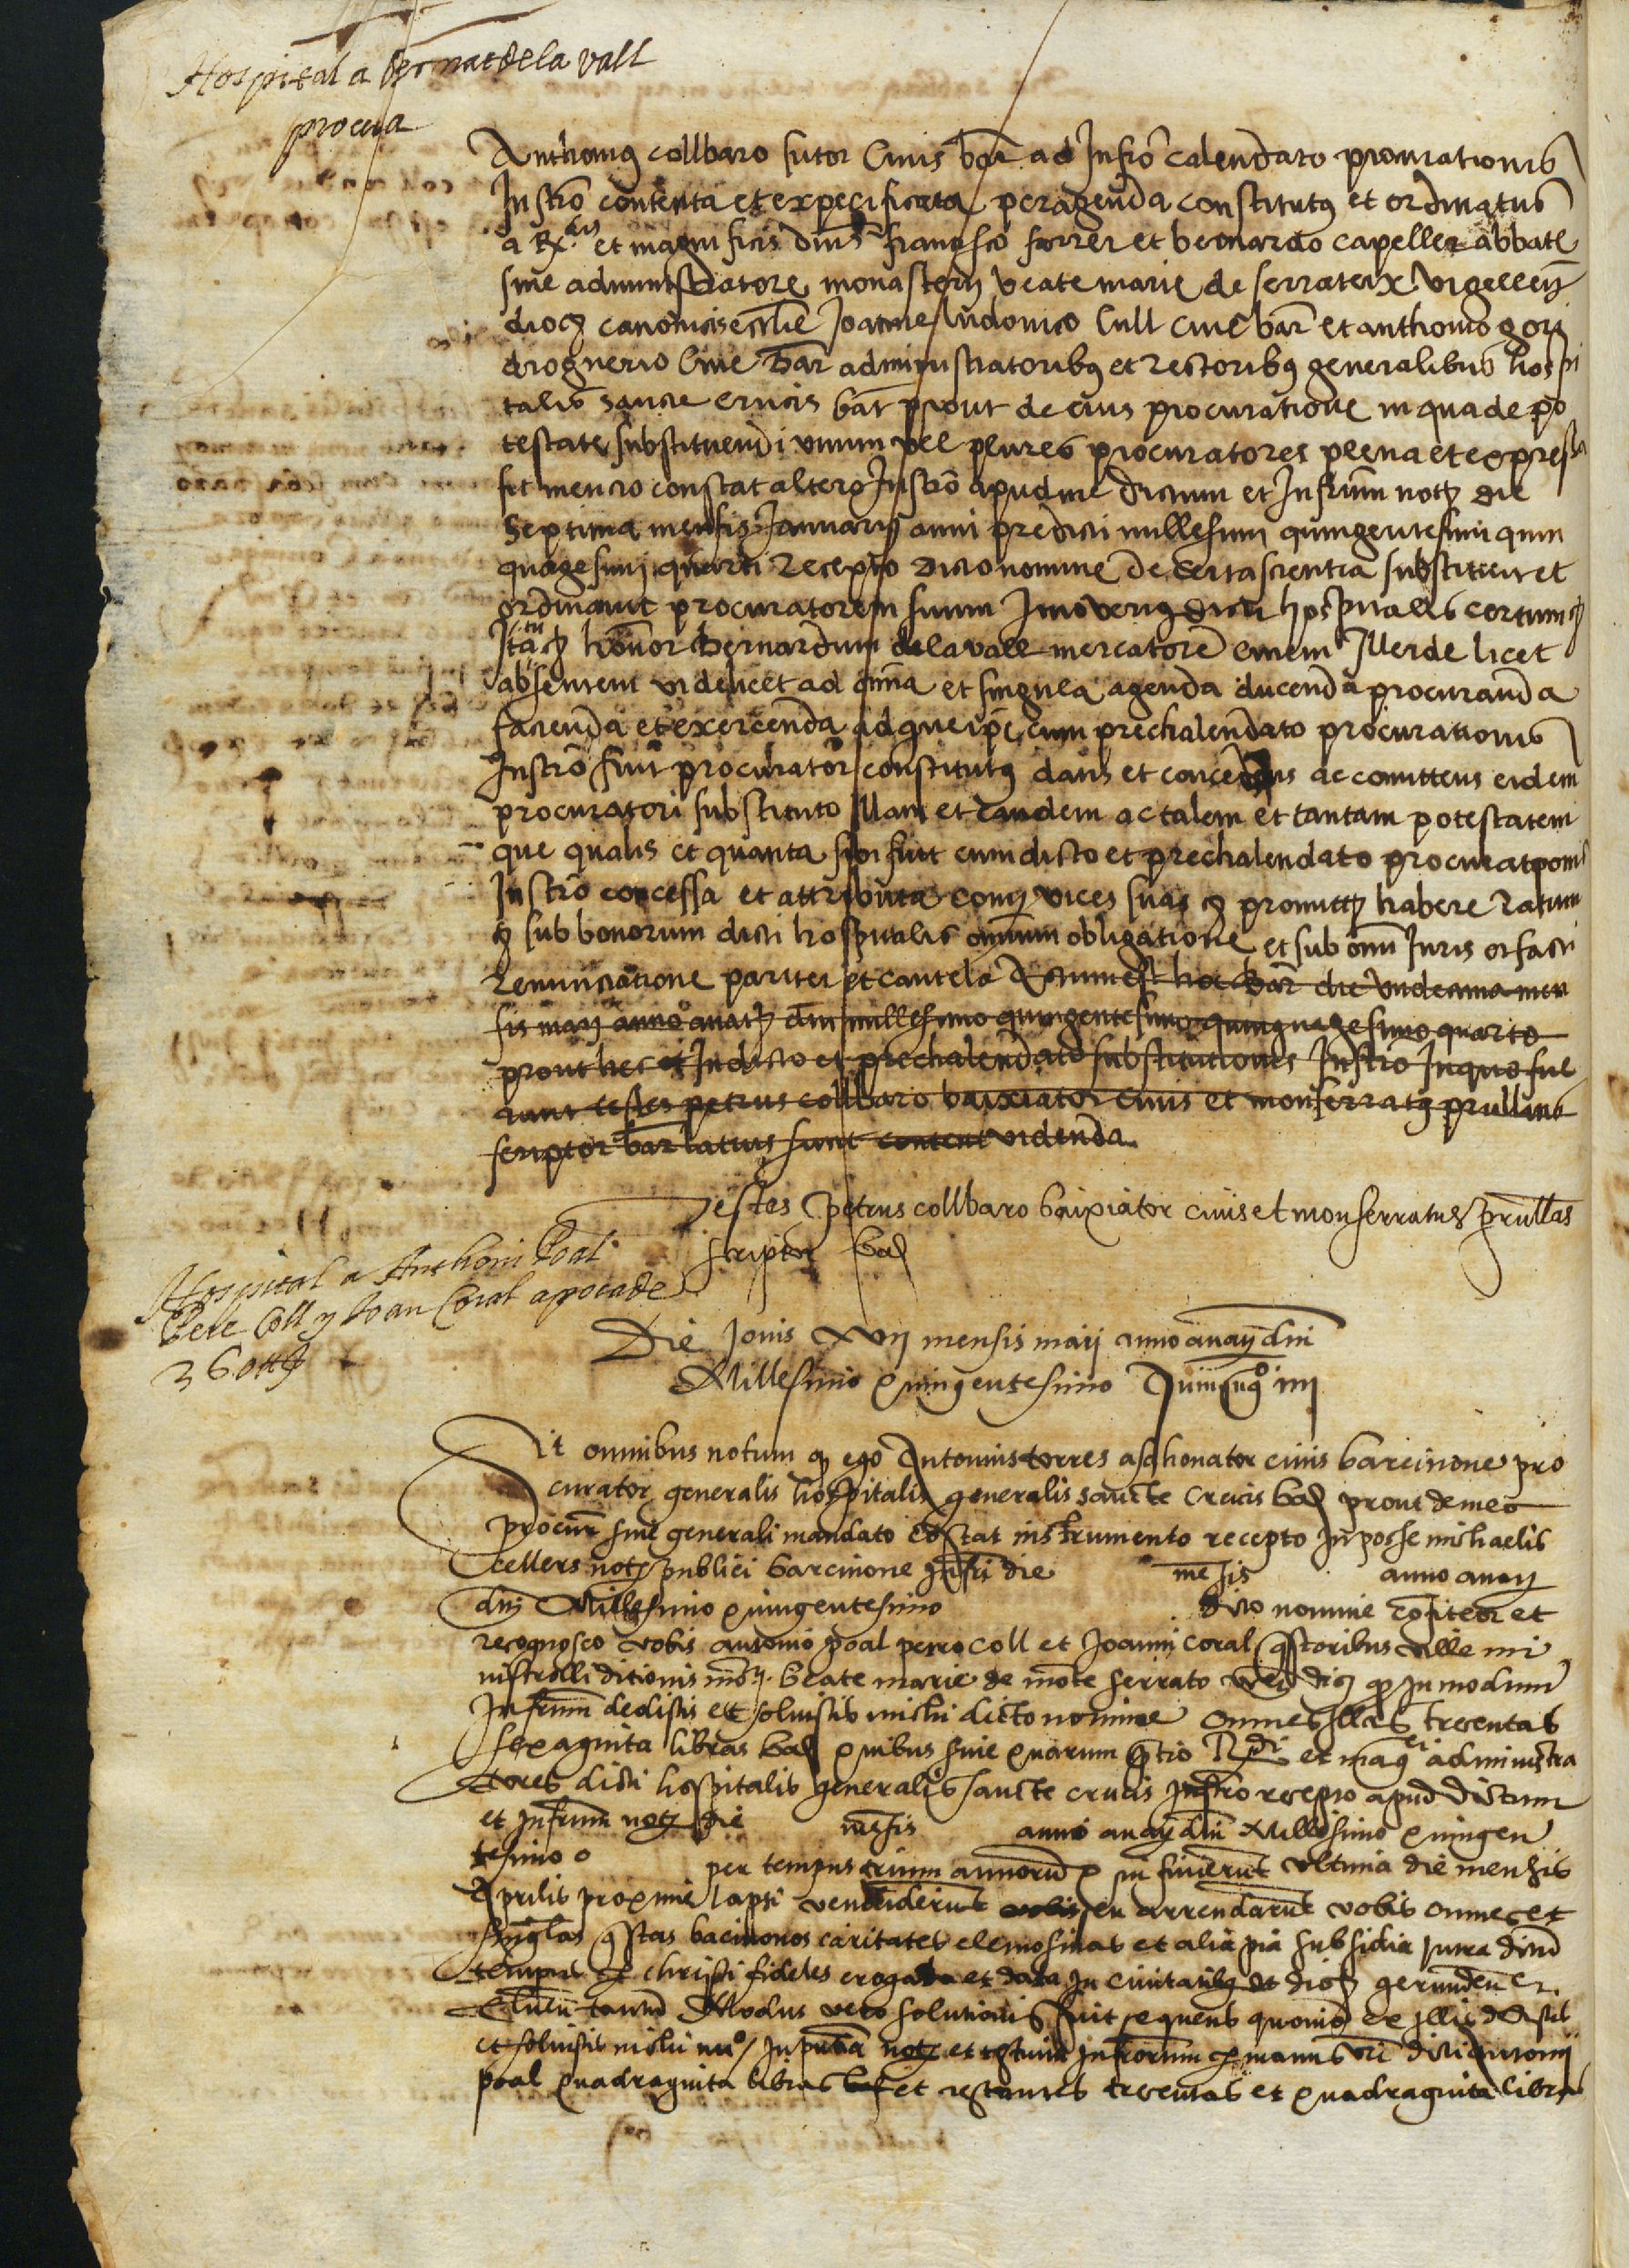 Hospital a bernat dela vall
procura
Anthonius collbaro sutor Civis bar ad Infro calendato procurationis
Instro contenta et expecificata peragenda constitutus et ordinatus
a Rdis et magnificis dnis francisco ferrer et bernardo capeller abbate
sive administratore monasterii beate marie de serrateix Urgellen
dioc canonicis ecclie Joanne ludovico lull cive bar et anthonio gori
droguerio Cive bar administratoribus et rectoribus generalibus hospi
talis sancte crucis bar prout de eius procuratione in qua de po
testate substituendi unum vel plures procuratores plena et expressa
fit mencio constat altero Instro apud me dictum et Infrum not die
Septima mensis Januarii anni predicti millesimi quingentesimi quin
quagesimi quarti recepto dicto nomine de certa scientia substituit et
ordinavit procuratorem suum Imoverius dicti hospitalis certum
honor bernardum dela vall mercatore civem Illerde licet
absentem videlicet ad omnia et singula agenda ducenda procuranda
facienda et exercenda ad que ipe cum prechalendato procurationis
Instro fuit procurator constitutus dans et concedens ac comittens eidem
procuratori substituto Illam et eandem ac talem et tantam potestatem
que qualis et quanta sibi fuit cum dicto et prechalendato procurationis
Instro concessa et attributa vices suas promitt habere ratum
sub bonorum dicti hospitalis omnium obligatione et sub omni Juris et facti
renunciatione pariter et cautela Actum est hoc bar die undecima men
sis maii anno a nat dni millesimo quingentesimo quinquagesimo quarto
prout hec Indicto et prechalendato substitutionis Instro In quo fue
runt testes petrus collbaro baixiator civis et monserratus prullans
scriptor bar latius sunt content videnda
Testes petrus collbaro baixiator civis et monserratus prullas
scriptor bar
Hospital a Anthoni Poal
Pere Coll y Joan Coral apoca de
360 ll
Die Jovis XVII mensis maii anno a nat dni
Millesimo quingentesimo Quinquo IIII
Sit omnibus notum q ego Antonius torres assahonator civis barcinone pro
curator generalis hospitalis generalis sancte crucis bar prout de mea
procur sive generali mandato constat instrumento recepto In posse michaelis
cellers not publici barcinone Infri die mesis anno a nat
dni Millesimo quingentesimo dicto nomine confiteor et
recognosco vobis antonio poal petro coll et Joanni coral questoribus ville mi
nistrolli ditionis beate marie de monte serrato q In modum
Infrum dedistis et solvistis michi dicto nomine omnes illas trecentas
sexaginta libras bar quibus sive quarum pretio Rdi et magci administra
tores dicti hospitalis generalis sancte crucis Instro recepto apud dictum
et Infrum not die mesis anno a nat dni Millesimo quingen
tesimo per tempus trium annoru qui finierunt ultima die mensis
Aprilis proxime lapsi vendiderunt vobis seu arrendarunt vobis omnes et
singlas questas bacinonos caritates elemosinas et alia pia subsidia Intra dictu
tempus per christi fideles erogada et data In civitatibus et dioc gerunden et
Elnen tantu Modus vero solutionis fuit sequens quoniam ex illis dedistis
et solvistis michi In pntia not et testium Infrorum per manus vri dicti antonii
poal quadraginta libras bar et restantes trecentas et quadraginta libras